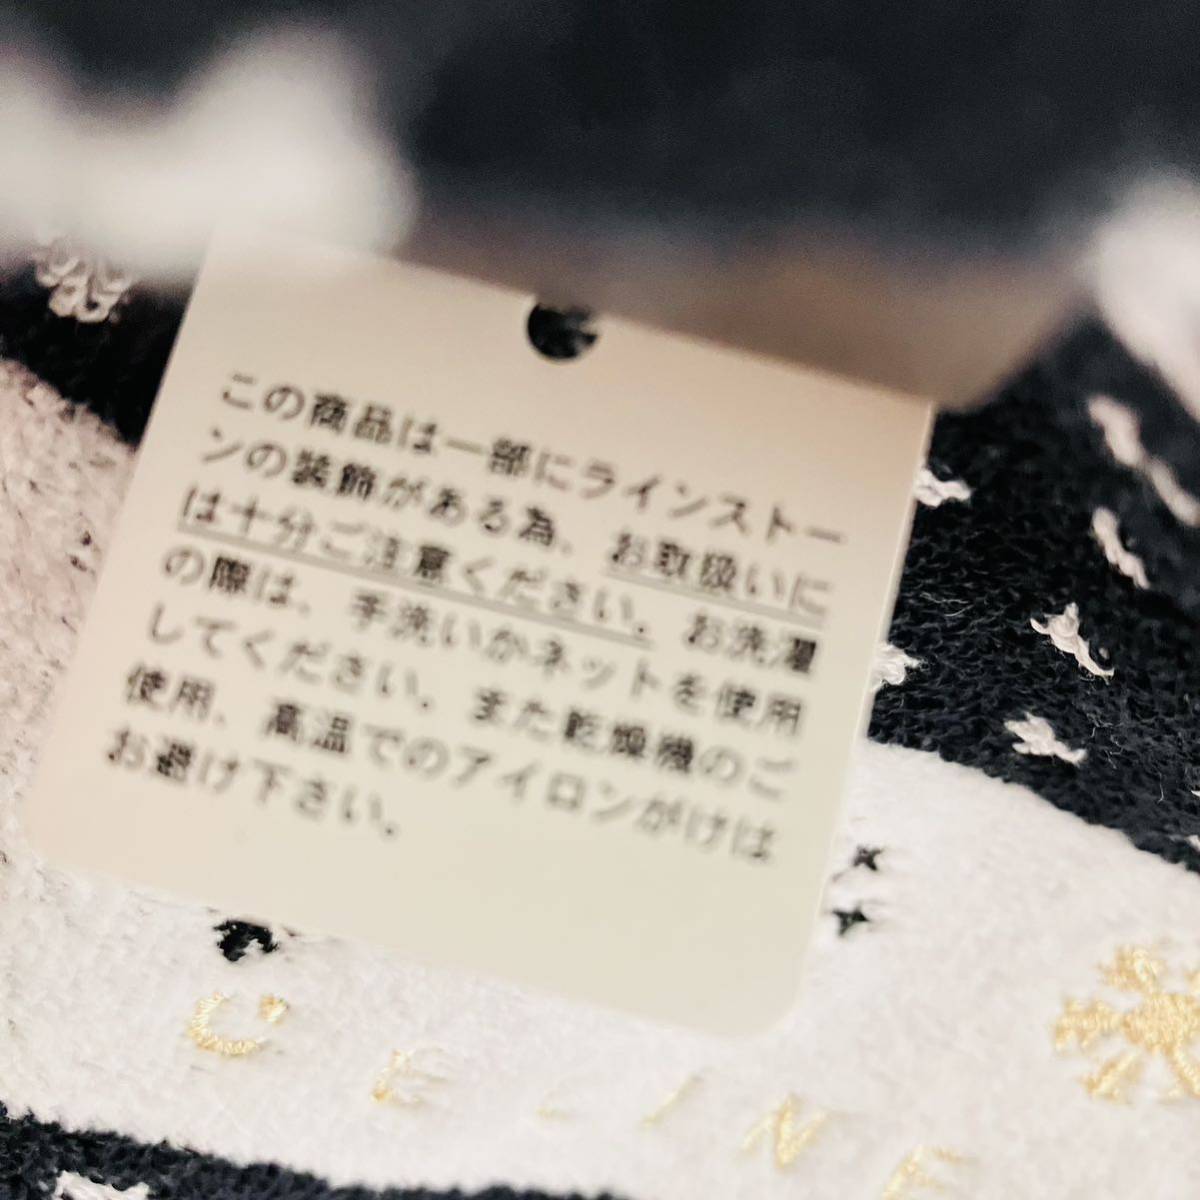 この商品は一部にラインストー
ンの装飾がある為、お取扱いに
は十分ご注意ください。お洗濯
の際は、手洗いかネットを使用
してください。また乾燥機のご
使用、高温でのアイロンがけは
お避け下さい。
CELINE